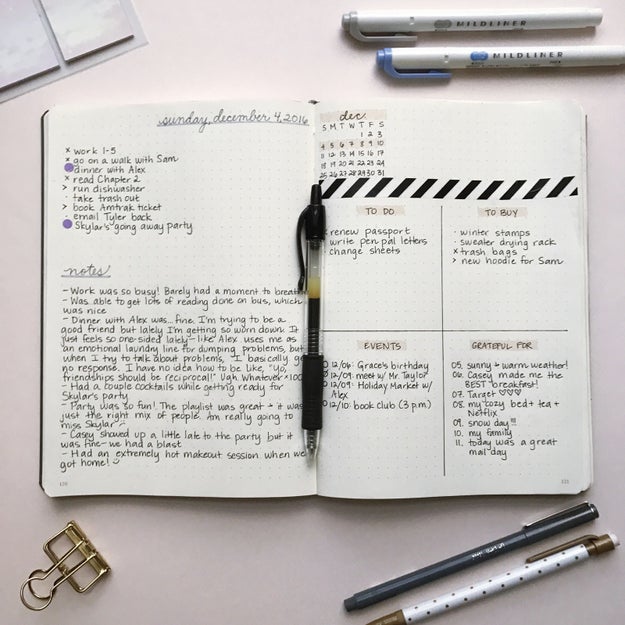 sunday, december 4, 2016
x work 1-5
x go on a walk with Sam
dinner with Alex
x read Chapter 2
> run dishwasher
· take trash out
> book Amtrak ticket
· email Tyler back
Skylar's going away party
notes:
- Work was so busy! Barely had a moment to breathe
- Was able to get lots of reading done on bus, which
was nice
- Dinner with Alex was... fine. I'm trying to be a
good friend but lately I'm getting so worn down. It
just feels so one-sided lately - like Alex uses me as
an emotional laundry line for dumping problems, but
when I try to talk about problems, I basically get
no response. I have no idea how to be like, "yo,
friendships should be reciprocal!" Ugh. Whatever x100
- Had a couple cocktails while getting ready for
Skylar's party
- Party was so fun! The playlist was great + it was
just the right mix of people. Am really going to
miss Skylar
- Casey showed up a little late to the party but it
was fine - we had a blast
- Had an extremely hot makeout session when we
got home!
dec.
S M T W T F S
1 2 3
4 5 6 7 8 9 10
11 12 13 14 15 16 17
18 19 20 21 22 23 24
25 26 27 28 29 30 31
TO DO
renew passport
write pen pal letters
change sheets
TO BUY
· winter stamps
· sweater drying rack
x trash bags
> new hoodie for Sam
EVENTS
12/06: Grace's birthday
12/09: meet w/ Mr. Taylor
12/09: Holiday Market w/
Alex
12/10: book club (3 p.m.)
GRATEFUL FOR
05. sunny + warm weather!
06. Casey made me the
BEST breakfast!
07. Target ♡♡♡
08. my cozy bed + tea +
Netflix
09. snow day!!!
10. my family
11. today was a great
mail day
MILDLINER
MILDLINER